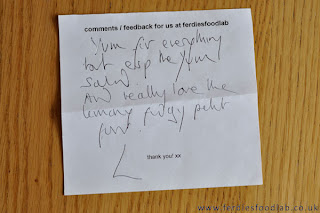 comments / feedback for us at ferdiesfoodlab
Yum for everything
but esp the
salad
And really love the
lemony fudgy
thank you! xx
L
www.ferdiesfoodlab.co.uk